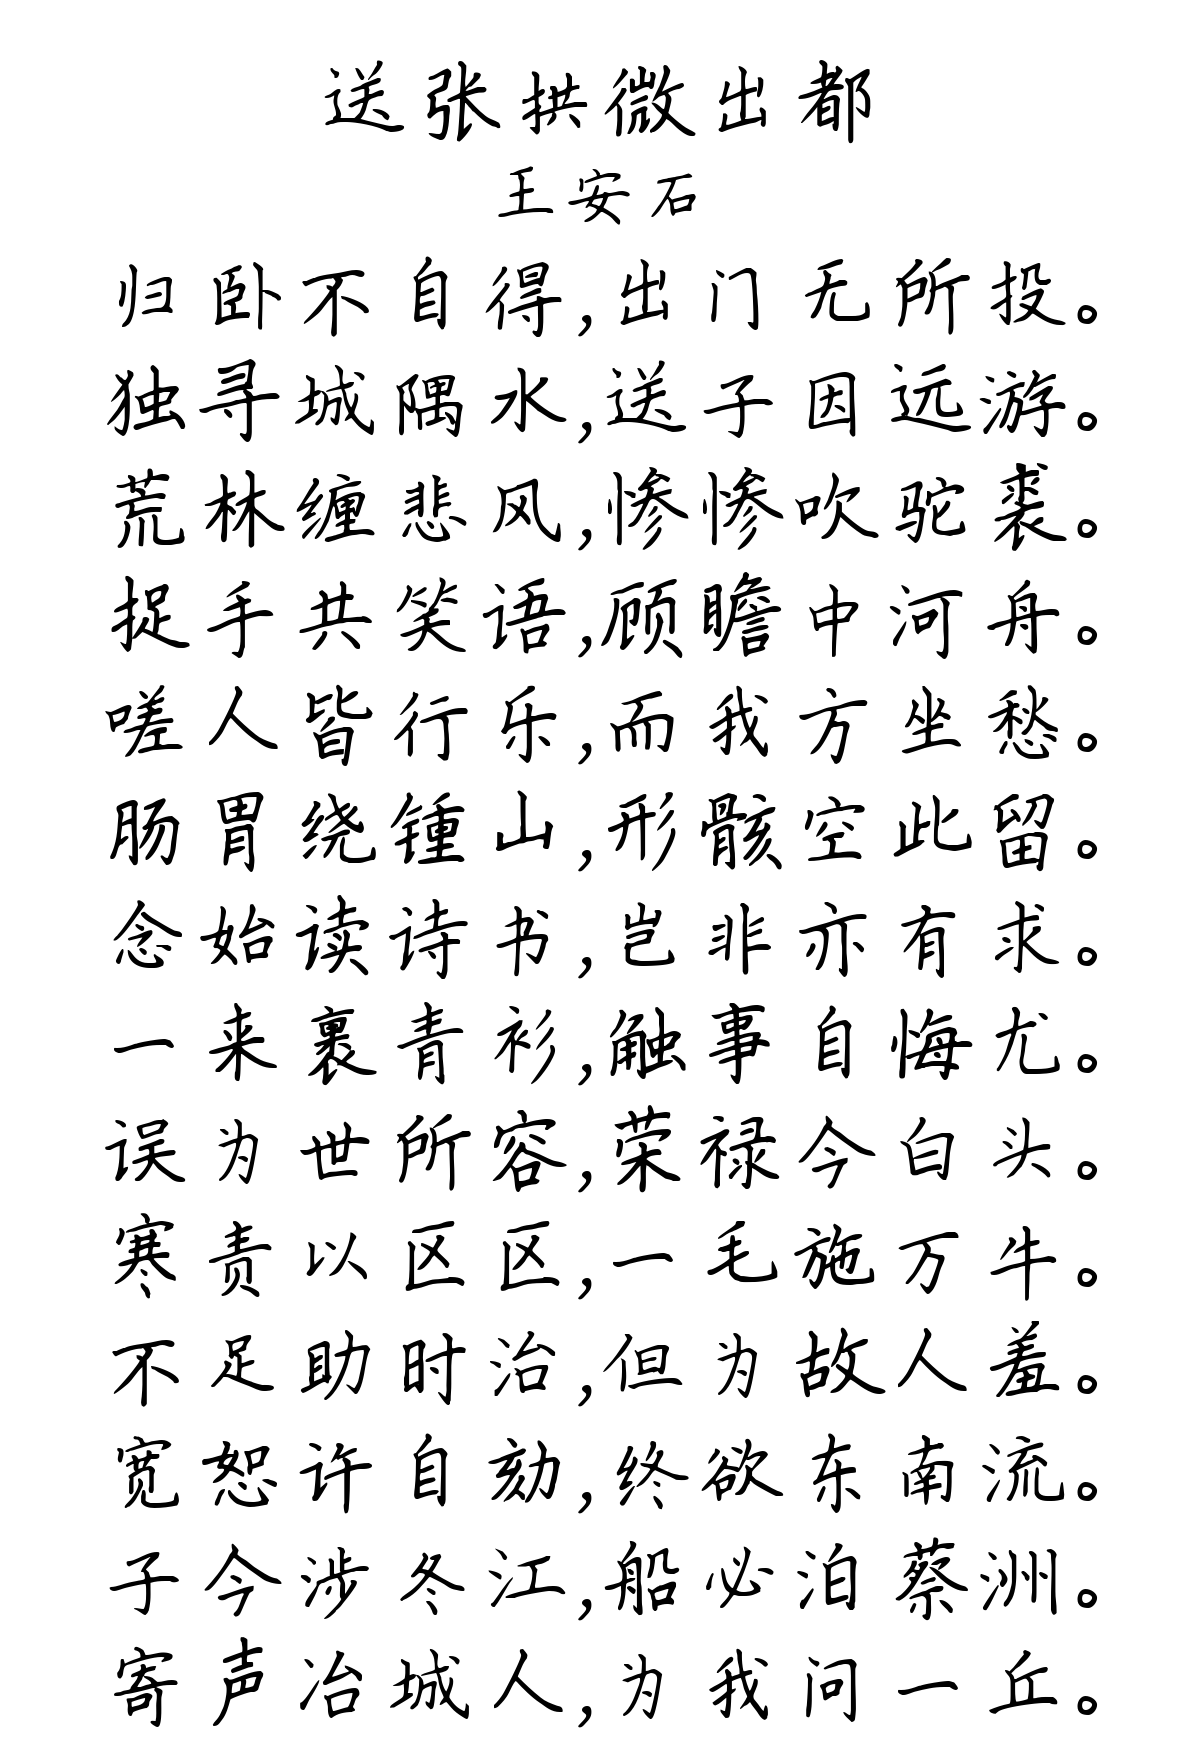 送张拱微出都
王安石
归卧不自得,出门无所投。
独寻城隅水,送子因远游。
荒林缠悲风,惨惨吹驼裘。
捉手共笑语,顾瞻中河舟。
嗟人皆行乐,而我方坐愁。
肠胃绕锺山,形骸空此留。
念始读诗书,岂非亦有求。
一来裹青衫,触事自悔尤。
误为世所容,荣禄今白头。
寒责以区区,一毛施万牛。
不足助时治,但为故人羞。
宽恕许自劾,终欲东南流。
子今涉冬江,船必泊蔡洲。
寄声冶城人,为我问一丘。